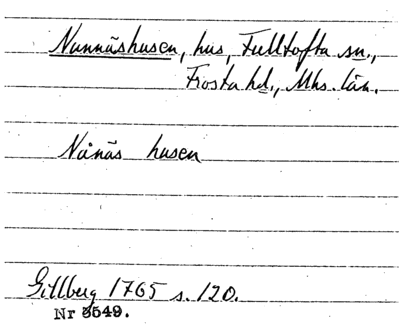 Nunnäshusen, hus, Fulltofta sn.,
Frosta hd., Mhs. län.
Nånäs husen
Gillberg 1765 s. 120.
Nr 3549.